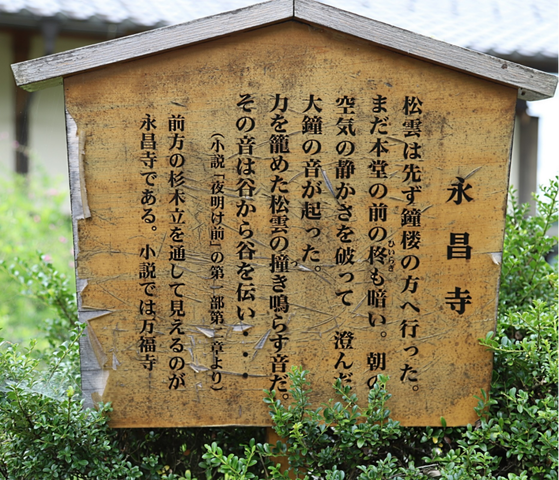 永昌寺
松雲は先ず鐘楼の方へ行った。
まだ本堂の前の柊も暗い。朝の
ひいらぎ
空気の静かさを破って　澄んだ
大鐘の音が起った。
力を籠めた松雲の撞き鳴らす音だ。
その音は谷から谷を伝い・・・
（小説「夜明け前」の第一部第二章より）
前方の杉木立を通して見えるのが
永昌寺である。小説では万福寺